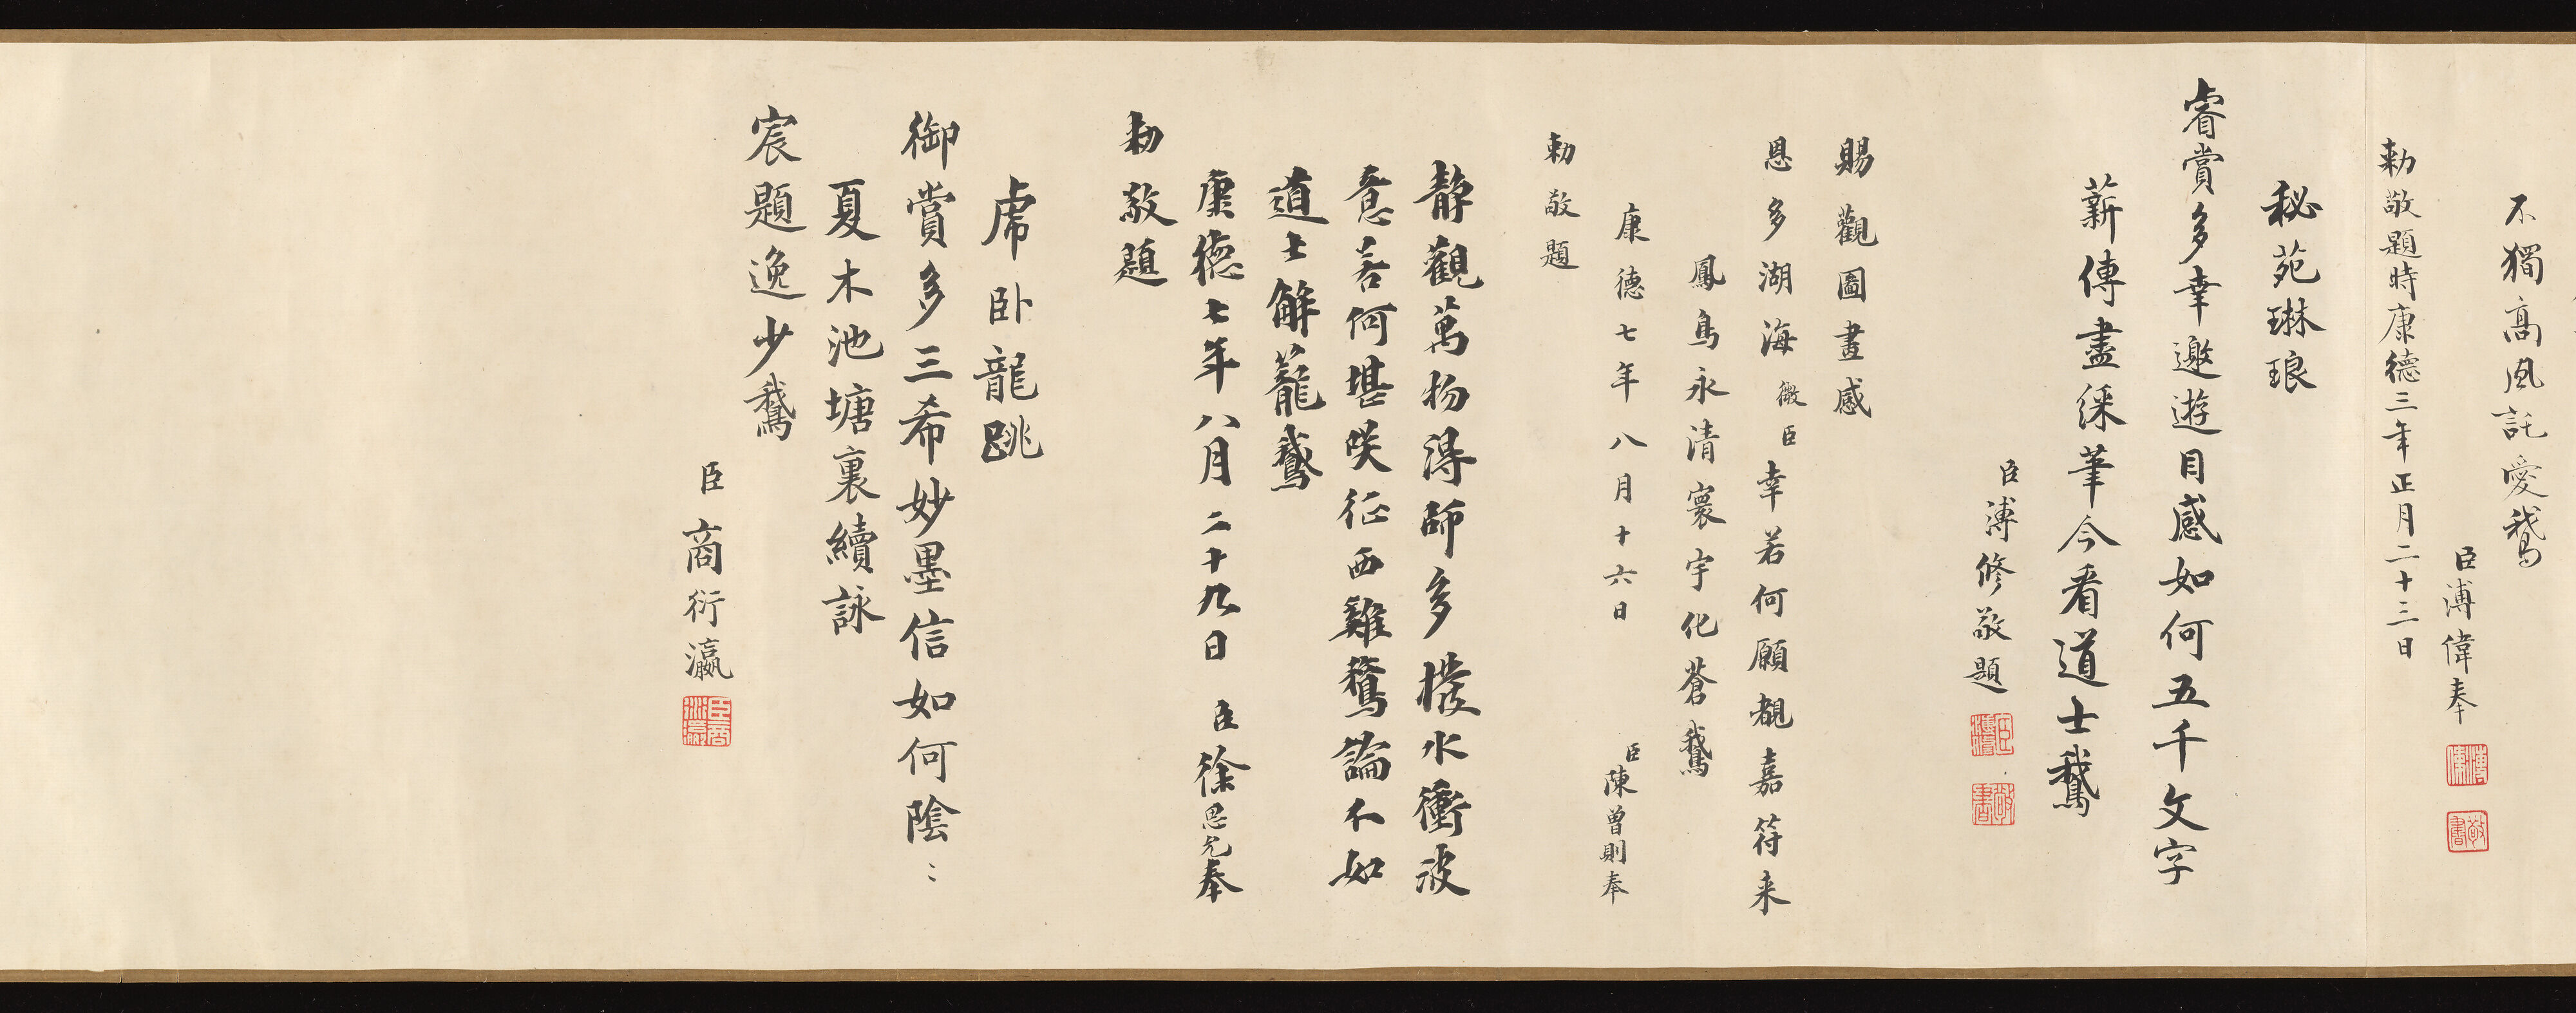 不獨高風託愛鵝
臣溥偉奉
勅敬題時康德三年正月二十三日
秘苑琳琅
睿賞多幸邀遊目感如何五千文字
薪傳盡綵筆今看道士鵝
臣溥修敬題
賜觀圖畫感
恩多湖海微臣幸若何願覩嘉符来
鳳鳥永清寰宇化蒼鵝
康德七年八月十六日
臣陳曾則奉
勅敬題
静觀萬物得師多撥水衝波
意若何堪咲征西雞鶩論不如
道士解籠鵝
康德七年八月二十九日 臣徐思允奉
勅敬題
虎卧龍跳
御賞多三希妙墨信如何陰〻
夏木池塘裏續詠
宸題逸少鵝
臣商衍瀛